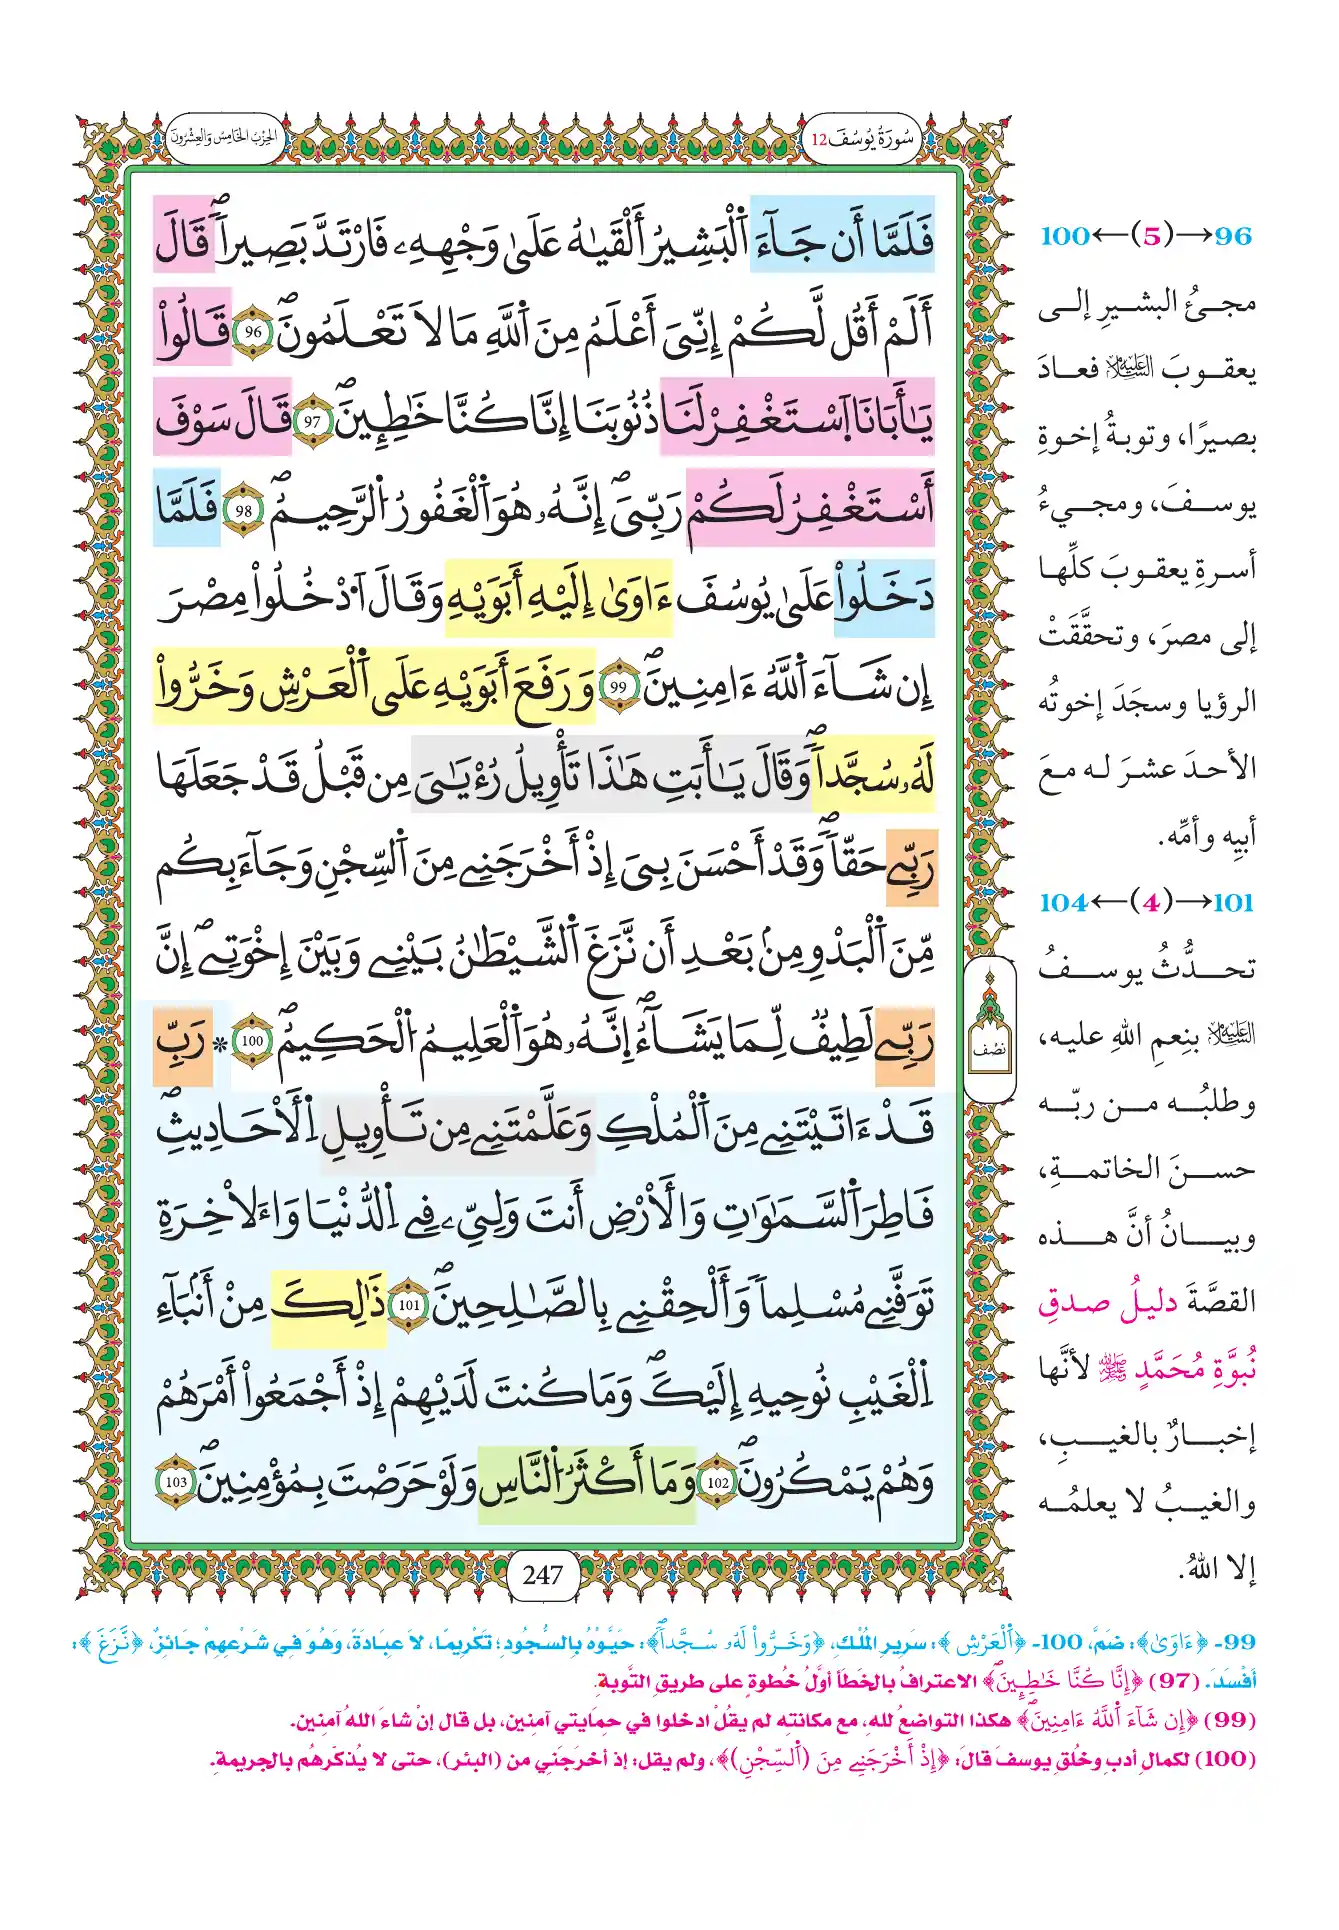 سُورَةُ يُوسُفَ 12
الحِزْبُ الخَامِسُ وَالعِشْرُونَ
فَلَمَّآ أَن جَآءَ اَ۬لْبَشِيرُ أَلْقَىٰهُ عَلَىٰ وَجْهِهِۦ فَارْتَدَّ بَصِيراٗۖ قَالَ
أَلَمْ أَقُل لَّكُمْ إِنِّيَ أَعْلَمُ مِنَ اَ۬للَّهِ مَا لَا تَعْلَمُونَۖ 96 قَالُواْ
يَٰأَبَانَا اَ۪سْتَغْفِرْ لَنَا ذُنُوبَنَا إِنَّا كُنَّا خَٰطِـِٕينَۖ 97 قَالَ سَوْفَ
أَسْتَغْفِرُ لَكُمْ رَبِّيَۖ إِنَّهُۥ هُوَ اَ۬لْغَفُورُ اُ۬لرَّحِيمُۖ 98 فَلَمَّا
دَخَلُواْ عَلَىٰ يُوسُفَ ءَاوَىٰٓ إِلَيْهِ أَبَوَيْهِ وَقَالَ اَ۟دْخُلُواْ مِصْرَ
إِن شَآءَ اَ۬للَّهُ ءَامِنِينَۖ 99 وَرَفَعَ أَبَوَيْهِ عَلَى اَ۬لْعَرْشِ وَخَرُّواْ
لَهُۥ سُجَّداٗۖ وَقَالَ يَٰأَبَتِ هَٰذَا تَأْوِيلُ رُءْيَٰيَ مِن قَبْلُ قَدْ جَعَلَهَا
رَبِّي حَقّاٗۖ وَقَدْ أَحْسَنَ بِيَ إِذْ أَخْرَجَنِي مِنَ اَ۬لسِّجْنِ وَجَآءَ بِكُم
مِّنَ اَ۬لْبَدْوِ مِنۢ بَعْدِ أَن نَّزَغَ اَ۬لشَّيْطَٰنُ بَيْنِي وَبَيْنَ إِخْوَتِيۖ إِنَّ
رَبِّي لَطِيفٞ لِّمَا يَشَآءُۖ اِنَّهُۥ هُوَ اَ۬لْعَلِيمُ اُ۬لْحَكِيمُۖ 100 * رَبِّ
قَدْ ءَاتَيْتَنِي مِنَ اَ۬لْمُلْكِ وَعَلَّمْتَنِي مِن تَأْوِيلِ اِ۬لْأَحَادِيثِۖ
فَاطِرَ اَ۬لسَّمَٰوَٰتِ وَالْأَرْضِ أَنتَ وَلِيِّۦ فِي اِ۬لدُّنْيَا وَاءَلَاخِرَةِ
تَوَفَّنِي مُسْلِماٗ وَأَلْحِقْنِي بِالصَّٰلِحِينَۖ 101 ذَٰلِكَ مِنْ أَنۢبَآءِ
اِ۬لْغَيْبِ نُوحِيهِ إِلَيْكَۖ وَمَا كُنتَ لَدَيْهِمْ إِذْ أَجْمَعُواْ أَمْرَهُمْ
وَهُمْ يَمْكُرُونَۖ 102 وَمَا أَكْثَرُ اُ۬لنَّاسِ وَلَوْ حَرَصْتَ بِمُؤْمِنِينَۖ 103
نصْف
247
96→(5)←100
مجئُ البشيرِ إلى
يعقوبَ عليه السلام فعادَ
بصيرًا، وتوبةُ إخوةِ
يوسفَ، ومجيءُ
أسرةِ يعقوبَ كلِّها
إلى مصرَ، وتحقَّقَتْ
الرؤيا وسجَدَ إخوتُه
الأحدَ عشرَ له معَ
أبيِه وأمِّه.
101→(4)←104
تحدُّثُ يوسفُ
عليه السلام بنِعمِ اللهِ عليه،
وطلبُه من ربّه
حسنَ الخاتمةِ،
وبيانُ أنَّ هذه
القصَّةَ دليلُ صدقِ
نُبوَّةِ مُحَمَّدٍ ﷺ لأنَّها
إخبارٌ بالغيبِ،
والغيبُ لا يعلمُه
إلا اللهُ.
99- ﴿ءَاوَىٰ﴾: ضَمَّ، 100- ﴿اَ۬لْعَرْشِ﴾: سَرِيرِ المُلْكِ، ﴿وَخَرُّواْ لَهُۥ سُجَّداٗۖ﴾: حَيَّوْهُ بِالسُّجُودِ؛ تَكْرِيمًا، لَا عِبَادَةً، وَهُوَ فِي شَرْعِهِمْ جَائِزٌ، ﴿نَّزَغَ﴾:
أَفْسَدَ. (97) ﴿إِنَّا كُنَّا خَٰطِـِٕينَۖ﴾ الاعترافُ بالخطأ أوَّلُ خُطوةٍ على طريقِ التَّوبةِ.
(99) ﴿إِن شَآءَ اَ۬للَّهُ ءَامِنِينَۖ﴾ هكذا التواضعُ للهِ، مع مكانتِه لم يقُلْ ادخلوا في حِمَايتي آمنين، بل قال إن شاءَ اللهُ آمنين.
(100) لكمالِ أدبِ وخُلقِ يوسفَ قالَ: ﴿إِذْ أَخْرَجَنِي مِنَ (اَ۬لسِّجْنِ)﴾، ولم يقل: إذ أخرجَني من (البئر)، حتى لا يُذكّرهُم بالجريمةِ.